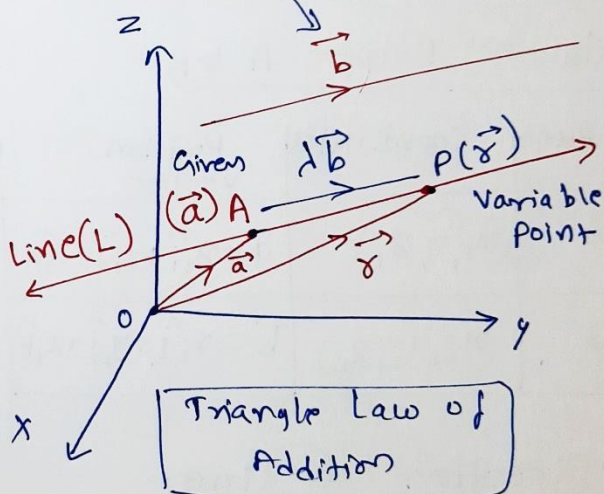 Z
b⃗
Given
λb⃗
P(r⃗)
(a⃗) A
Variable
Point
Line(L)
a⃗
r⃗
O
y
X
Triangle Law of
Addition